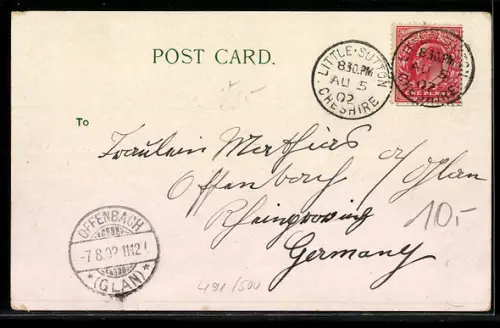 POST CARD.
LITTLE-SUTTON
8 30.PM
AU 5
02
CHESHIRE
LITTLE-SUTTON
8 30.PM
AU 5
02
CHESHIRE
ONE PENNY
To
Fräulein Mathias
Offenbach a/Glan
Rheinprovinz
Germany
10.-
OFFENBACH
-7.8.02 1112
* (GLAN) *
491/500